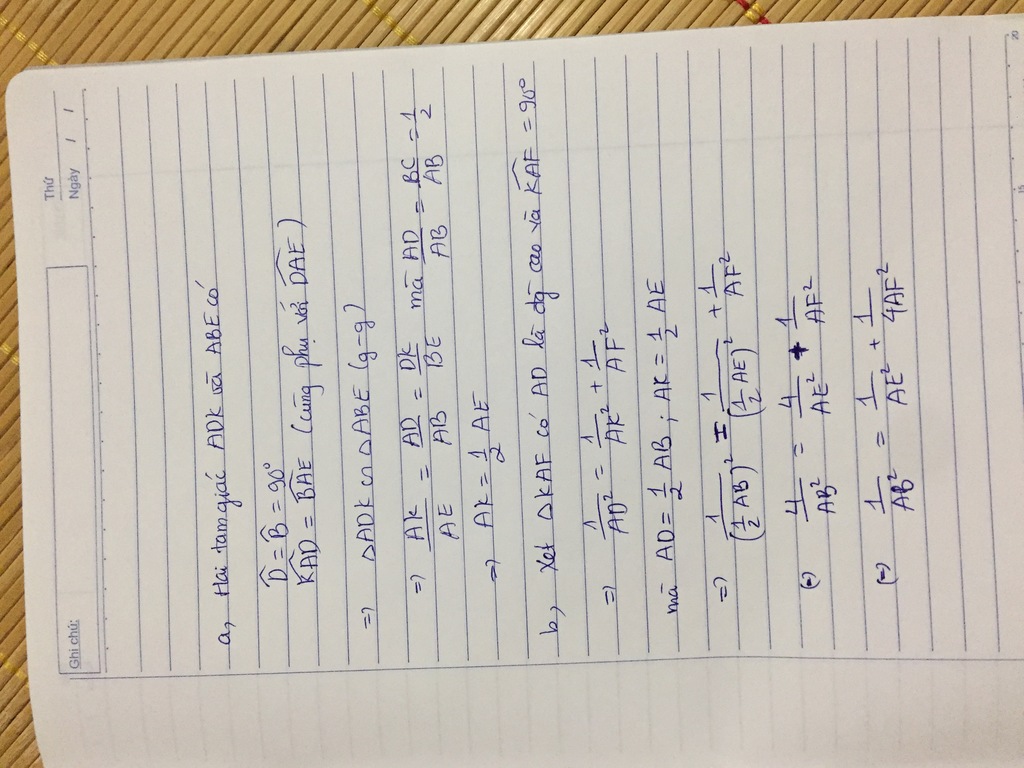 Ghi chú:
Thứ
Ngày / /
a, Hai tam giác ADK và ABE có
D̂ = B̂ = 90°
K̂AD = B̂AE (cùng phụ với D̂AE)
=) ΔADK ∽ ΔABE (g-g)
=) AK/AE = AD/AB = DK/BE mà AD/AB = BC/AB = 1/2
=) AK = 1/2 AE
b, Xét ΔKAF có AD là đg̀ cao và K̂AF = 90°
=) 1/AD² = 1/AK² + 1/AF²
mà AD = 1/2 AB ; AK = 1/2 AE
=) 1/(1/2 AB)² = 1/(1/2 AE)² + 1/AF²
(=) 4/AB² = 4/AE² + 1/AF²
(=) 1/AB² = 1/AE² + 1/4AF²
15
20